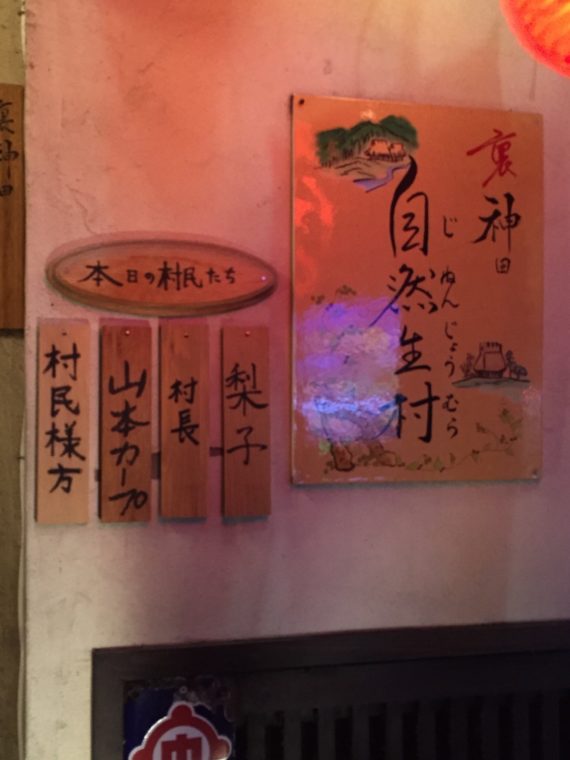 裏神田
自然生村
じねんじょうむら
本日の村民たち
梨子
村長
山本カープ
村民様方
裏神田